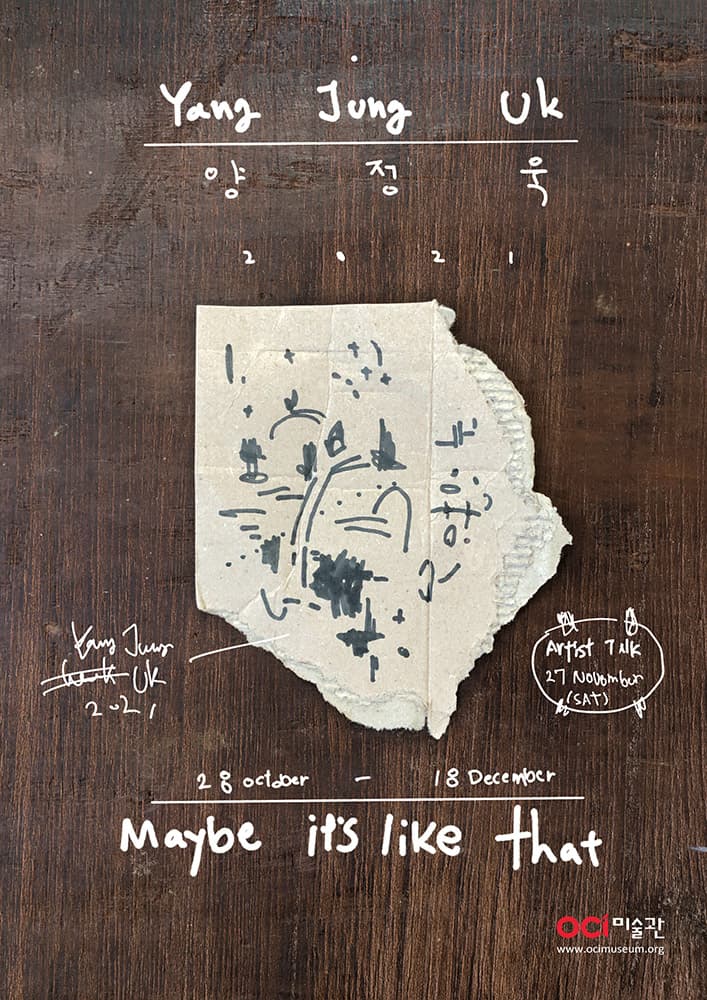 Yang Jung Uk
양 정 욱
2021
Yang Jung
Uk
2021
Artist Talk
27 November
(SAT)
28 october - 18 December
Maybe it's like that
oci 미술관
www.ocimuseum.org